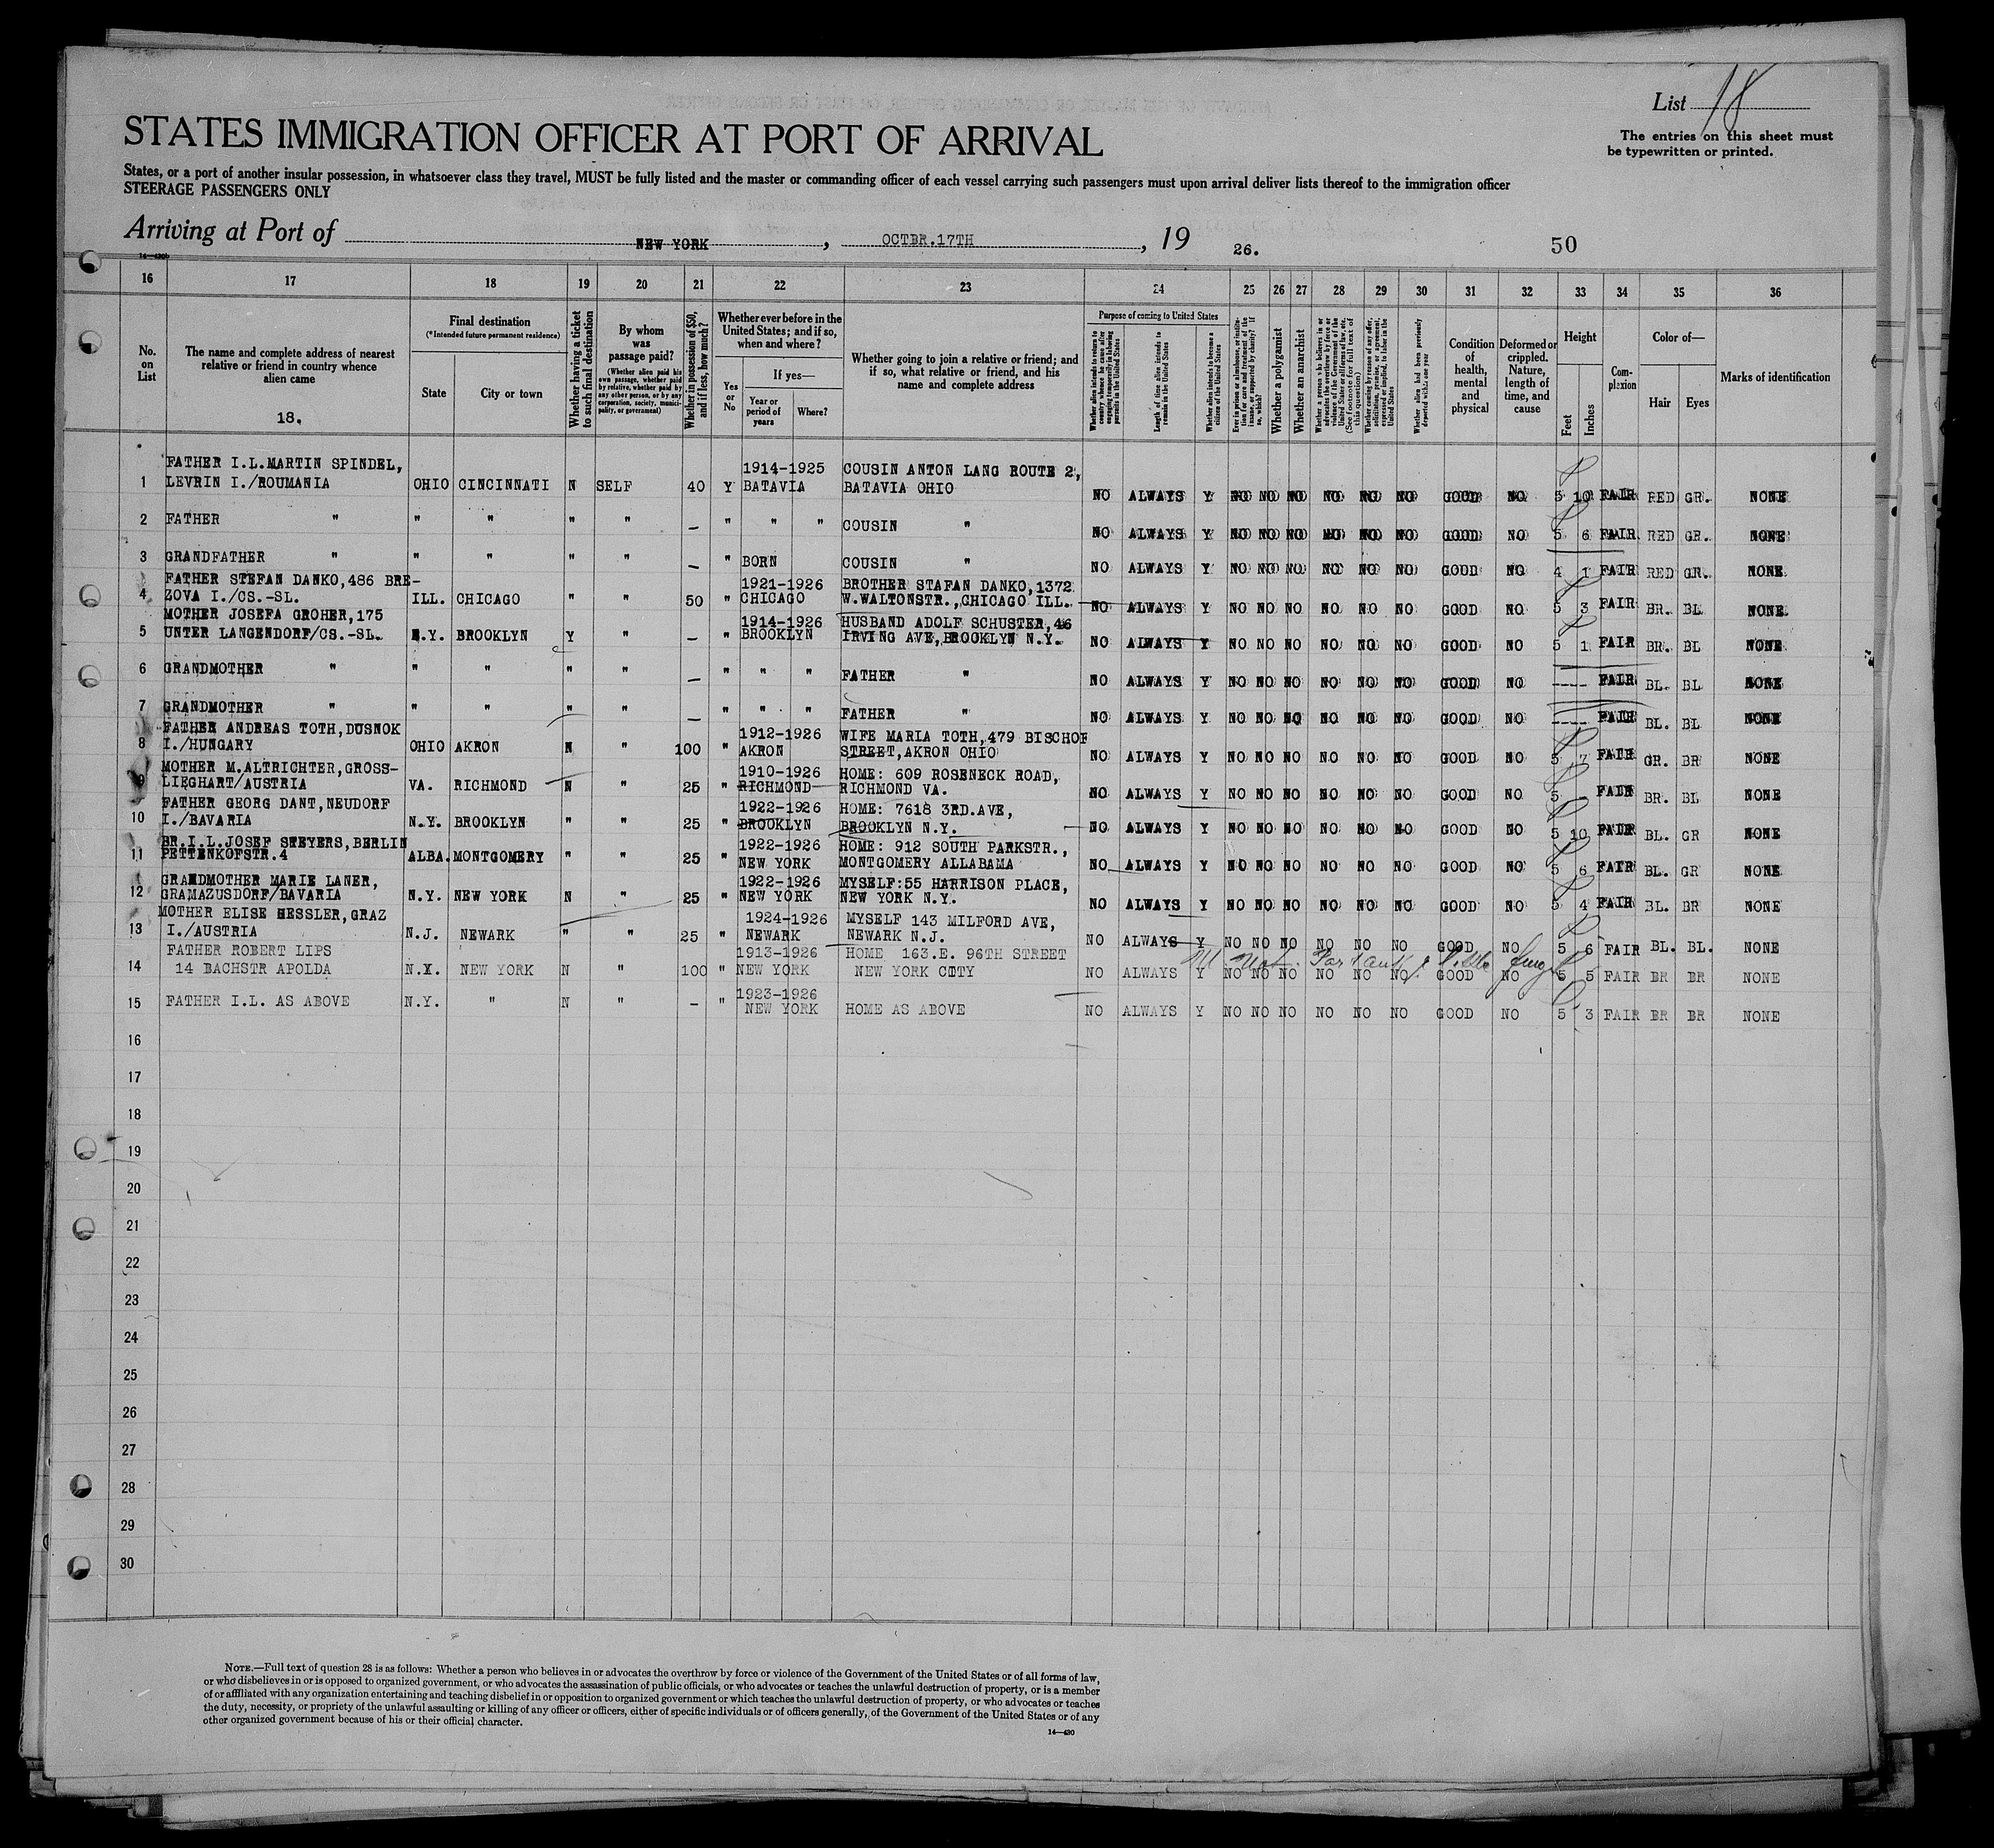 List 18
The entries on this sheet must
be typewritten or printed.
STATES IMMIGRATION OFFICER AT PORT OF ARRIVAL
States, or a port of another insular possession, in whatsoever class they travel, MUST be fully listed and the master or commanding officer of each vessel carrying such passengers must upon arrival deliver lists thereof to the immigration officer
STEERAGE PASSENGERS ONLY
Arriving at Port of NEW YORK, OCTBR.17TH, 1926. 50
16 17 18 19 20 21 22 23 24 25 26 27 28 29 30 31 32 33 34 35 36
No. on List
The name and complete address of nearest relative or friend in country whence alien came
18.
Final destination
(*Intended future permanent residence)
State
City or town
Whether having a ticket to such final destination
By whom was passage paid?
(Whether alien paid his own passage, whether paid by relative, whether paid by any other person, or by any corporation, society, municipality, or government)
Whether in possession of $50, and if less, how much?
Whether ever before in the United States; and if so, when and where?
Yes or No
If yes—
Year or period of years
Where?
Whether going to join a relative or friend; and if so, what relative or friend, and his name and complete address
Purpose of coming to United States
Whether alien intends to return to country whence he came after engaging temporarily in laboring pursuits in the United States
Length of time alien intends to remain in the United States
Whether alien intends to become a citizen of the United States
Ever in prison or almshouse, or institution for care and treatment of the insane, or supported by charity? If so, which?
Whether a polygamist
Whether an anarchist
Whether a person who believes in or advocates the overthrow by force or violence of the Government of the United States or all forms of law, etc. (See footnote for full text of this question)
Whether coming by reason of any offer, solicitation, promise, or agreement, expressed or implied, to labor in the United States
Whether alien had been previously deported within one year
Condition of health, mental and physical
Deformed or crippled. Nature, length of time, and cause
Height
Feet
Inches
Complexion
Color of—
Hair
Eyes
Marks of identification
FATHER I.L.MARTIN SPINDEL, 1914-1925 COUSIN ANTON LANG ROUTE 2,
1 LEVRIN I./ROUMANIA OHIO CINCINNATI N SELF 40 Y BATAVIA BATAVIA OHIO NO ALWAYS Y NO NO NO NO NO NO GOOD NO 5 10 FAIR RED GR. NONE
2 FATHER " " " " " — " " " COUSIN " NO ALWAYS Y NO NO NO NO NO NO GOOD NO 5 6 FAIR RED GR. NONE
3 GRANDFATHER " " " " " — " BORN COUSIN " NO ALWAYS Y NO NO NO NO NO NO GOOD NO 4 1 FAIR RED GR. NONE
FATHER STEFAN DANKO,486 BRE- 1921-1926 BROTHER STAFAN DANKO,1372
4 ZOVA I./CS.-SL. ILL. CHICAGO " " 50 " CHICAGO W.WALTONSTR.,CHICAGO ILL. NO ALWAYS Y NO NO NO NO NO NO GOOD NO 5 3 FAIR BR. BL NONE
MOTHER JOSEFA GROHER,175 1914-1926 HUSBAND ADOLF SCHUSTER,46
5 UNTER LANGENDORF/CS.-SL. N.Y. BROOKLYN Y " — " BROOKLYN IRVING AVE,BROOKLYN N.Y. NO ALWAYS Y NO NO NO NO NO NO GOOD NO 5 1 FAIR BR. BL NONE
6 GRANDMOTHER " " " " " — " " " FATHER " NO ALWAYS Y NO NO NO NO NO NO GOOD NO ---- FAIR BL. BL NONE
7 GRANDMOTHER " " " " " — " " " FATHER " NO ALWAYS Y NO NO NO NO NO NO GOOD NO ---- FAIR BL. BL NONE
FATHER ANDREAS TOTH,DUSNOK 1912-1926 WIFE MARIA TOTH,479 BISCHOF
8 I./HUNGARY OHIO AKRON N " 100 " AKRON STREET,AKRON OHIO NO ALWAYS Y NO NO NO NO NO NO GOOD NO 5 7 FAIR GR. BR NONE
MOTHER M.ALTRICHTER,GROSS- 1910-1926 HOME: 609 ROSENECK ROAD,
9 LIEGHART/AUSTRIA VA. RICHMOND N " 25 " RICHMOND RICHMOND VA. NO ALWAYS Y NO NO NO NO NO NO GOOD NO 5 - FAIR BR. BL NONE
FATHER GEORG DANT,NEUDORF 1922-1926 HOME: 7618 3RD.AVE,
10 I./BAVARIA N.Y. BROOKLYN " " 25 " BROOKLYN BROOKLYN N.Y. NO ALWAYS Y NO NO NO NO NO NO GOOD NO 5 10 FAIR BL. GR NONE
BR.I.L.JOSEF STEYERS,BERLIN 1922-1926 HOME: 912 SOUTH PARKSTR.,
11 PETTENKOFSTR.4 ALBA. MONTGOMERY " " 25 " NEW YORK MONTGOMERY ALLABAMA NO ALWAYS Y NO NO NO NO NO NO GOOD NO 5 6 FAIR BL. GR NONE
GRANDMOTHER MARIE LANER, 1922-1926 MYSELF:55 HARRISON PLACE,
12 GRAMAZUSDORF/BAVARIA N.Y. NEW YORK N " 25 " NEW YORK NEW YORK N.Y. NO ALWAYS Y NO NO NO NO NO NO GOOD NO 5 4 FAIR BL. BR NONE
MOTHER ELISE HESSLER,GRAZ 1924-1926 MYSELF 143 MILFORD AVE,
13 I./AUSTRIA N.J. NEWARK " " 25 " NEWARK NEWARK N.J. NO ALWAYS Y NO NO NO NO NO NO GOOD NO 5 6 FAIR BL. BL. NONE
FATHER ROBERT LIPS 1913-1926 HOME 163.E. 96TH STREET
14 14 BACHSTR APOLDA N.Y. NEW YORK N " 100 " NEW YORK NEW YORK CITY NO ALWAYS Y NO NO NO NO NO NO GOOD NO 5 5 FAIR BR BR NONE
1923-1926
15 FATHER I.L. AS ABOVE N.Y. " N " — " NEW YORK HOME AS ABOVE NO ALWAYS Y NO NO NO NO NO NO GOOD NO 5 3 FAIR BR BR NONE
16
17
18
19
20
21
22
23
24
25
26
27
28
29
30
NOTE.—Full text of question 28 is as follows: Whether a person who believes in or advocates the overthrow by force or violence of the Government of the United States or of all forms of law,
or who disbelieves in or is opposed to organized government, or who advocates the assassination of public officials, or who advocates or teaches the unlawful destruction of property, or is a member
of or affiliated with any organization entertaining and teaching disbelief in or opposition to organized government or which teaches the unlawful destruction of property, or who advocates or teaches
the duty, necessity, or propriety of the unlawful assaulting or killing of any officer or officers, either of specific individuals or of officers generally, of the Government of the United States or of any
other organized government because of his or their official character.
14—430